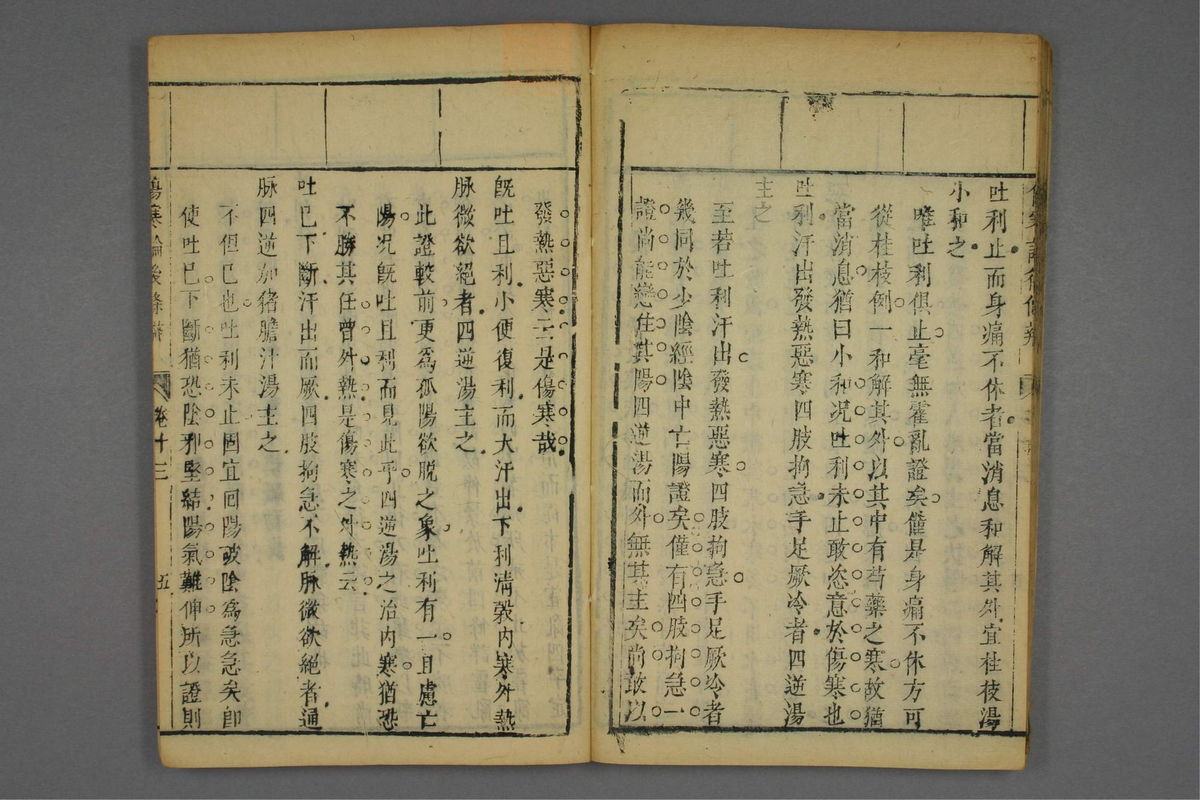 吐利止而身痛不休者當消息和解其外宜桂枝湯
小和之
唯吐利俱止毫無霍亂證矣僅是身痛不休方可
從桂枝例一和解其外以其中有芍藥之寒故猶
當消息猶曰小和况吐利未止敢恣意於傷寒也
吐利汗出發熱惡寒四肢拘急手足厥冷者四逆湯
主之
至若吐利汗出發熱惡寒四肢拘急手足厥冷者
幾同於少陰經陰中亡陽證矣僅有四肢拘急一
證尚能戀住其陽四逆湯而外無其主矣尚敢以
發熱惡寒二是傷寒哉
旣吐且利小便復利而大汗出下利清穀内寒外熱
脉微欲絕者四逆湯主之
此證較前更爲孤陽欲脱之象吐利有一且慮亡
陽况旣吐且利而見此乎四逆湯之治内寒猶恐
不勝其任曾外熱是傷寒之外熱云
吐已下斷汗出而厥四肢拘急不解脉微欲絕者通
脉四逆加猪膽汁湯主之
不但已也吐利未止固宜囘陽破陰爲急急矣卽
使吐已下斷猶恐陰邪堅結陽氣難伸所以證則
傷寒論後條辨 卷十三 五